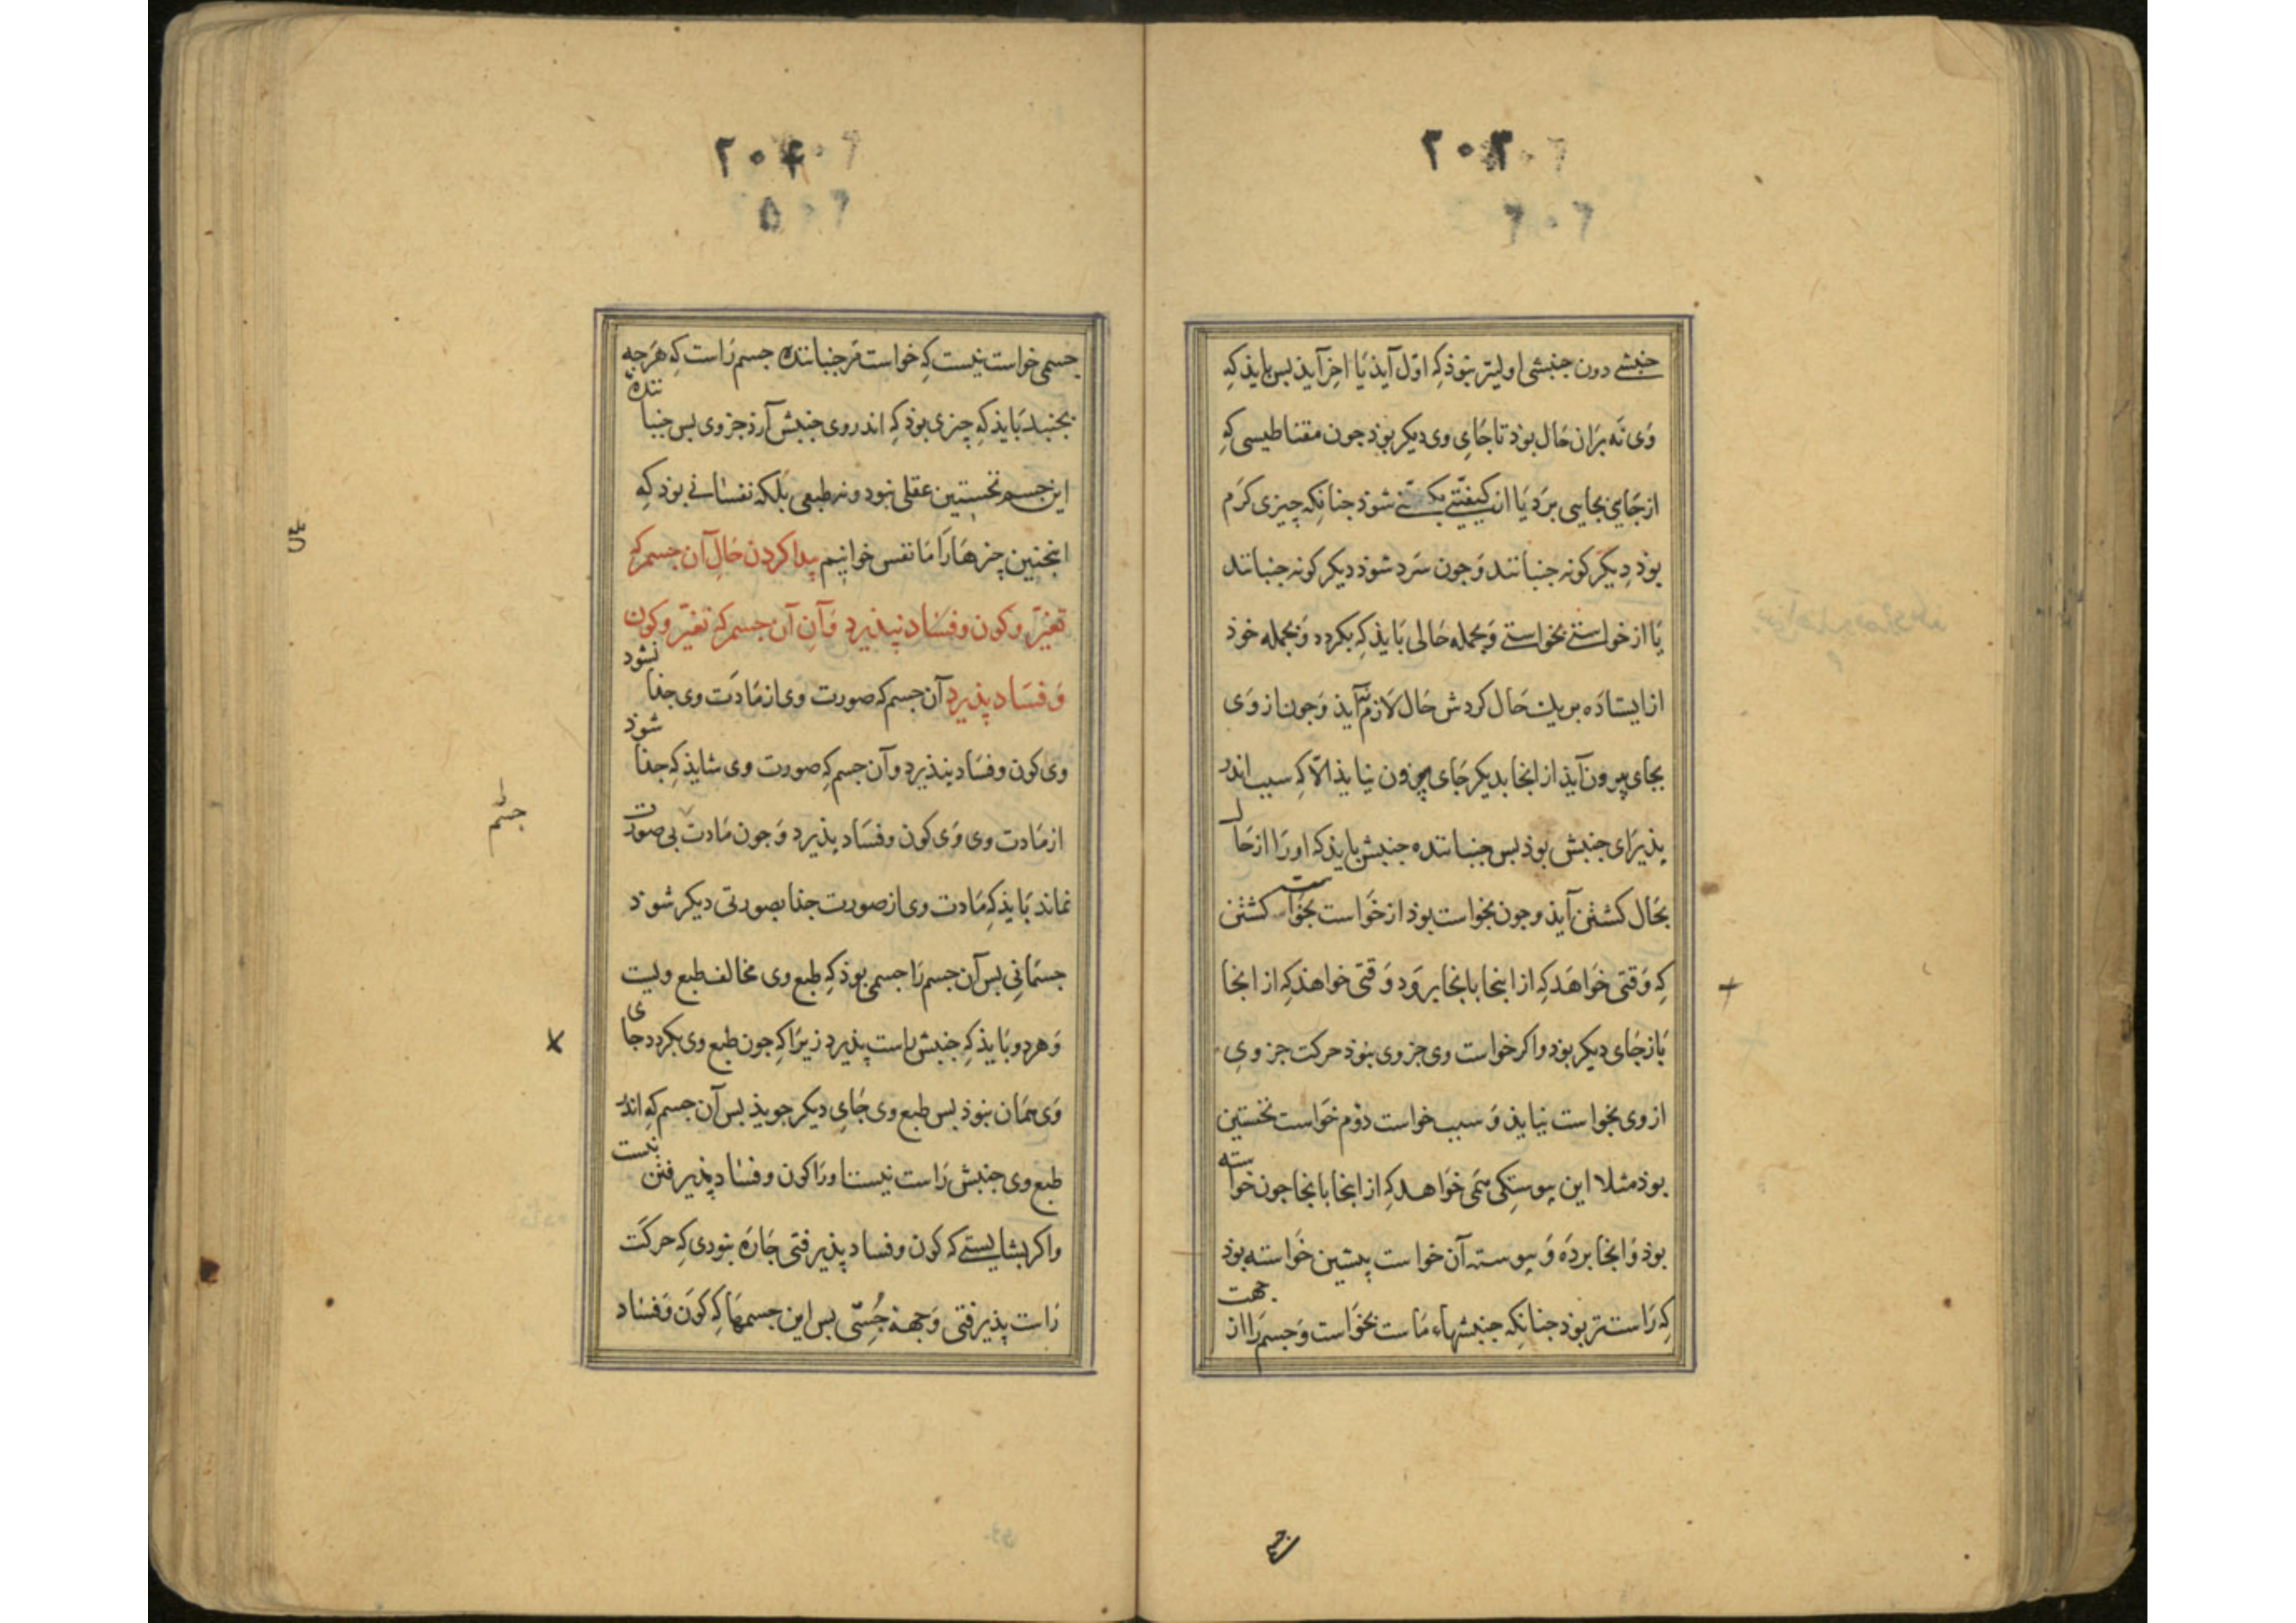 ۲۰۳
جنبشی دون جنبشی اولیتر نبوذ که اوّل آیذ یا اخر آیذ بس بایذ که
وی نه بران حال بوذ تا جای وی دیکر بوذ جون مقناطیسی که
از جایی بجایی برد یا از کیفیّتی بکیفیّتی شوذ جنانکه چیزی کرم
بوذ دیکر کونه جنبانند و جون سرد شوذ دیکر کونه جنبانند
یا از خواستی بخواستی و بجمله حالی بایذ که بکردد و بجمله خوذ
از ایستاده بر یک حال کردش حال لازم نیآیذ و جون از وی
بجای بیرون آیذ از انجا بدیکر جای بیرون نیایذ الّا که سبب اندر
بذیرای جنبش بوذ بس جنبانندهٔ جنبش بایذ که او را از حال
بحال کشتن آیذ و جون بخواست بوذ از خواست بخواست کشتن
که وقتی خواهد که از اینجا بانجا برود و وقتی خواهذ که از انجا
باز جای دیکر بود و اکر خواست وی جزوی بنوذ حرکت جزوی
از وی بخواست نیایذ و سبب خواست دوم خواست نخستین
بوذ مثلا این بیوستکی همی خواهد که از اینجا بانجا جون خواسته
بوذ و انجا برده و بیوسته آن خواست پیشین خواسته بوذ
که راستتر بوذ جنانکه جنبشهاء ماست بخواست و جسم را از جهت
۲۰۴
جسمی خواست نیست که خواست مر جنباننده جسم راست که هرجه
بجنبد بایذ که چیزی بوذ که اندر وی جنبش آرذ جز وی بس جنباننده
این جسم نخستین عقلی نبود و نه طبعی بلکه نفسانی بوذ که
اینجنین چیزها را ما نفس خوانیم پیدا کردن حال آن جسم که
تغیّر و کون و فساد نپذیرد و آن آن جسم که تغیّر و کون
و فساد پذیرد آن جسم که صورت وی از مادت وی جذا نشود
وی کون و فساد نپذیرد و آن جسم که صورت وی شایذ که جذا شوذ
از مادت وی وی کون و فساد بذیرد و جون مادت بی صورت
نماند بایذ که مادت وی از صورت جذا بصورتی دیکر شوذ
جسمانی بس آن جسم را جسمی بوذ که طبع وی مخالف طبع ویست
و هردو بایذ که جنبش راست پذیرد زیرا که جون طبع وی بکردد جای
وی همان نبوذ بس طبع وی جای دیکر جویذ بس آن جسم که اندر
طبع وی جنبش راست نیست اورا کون و فساد پذیرفتن نیست
و اکر بشایستی که کون و فساد پذیرفتی جاره نبودی که حرکت
راست پذیرفتی و جهة جُستی بس این جسمها که کون و فساد